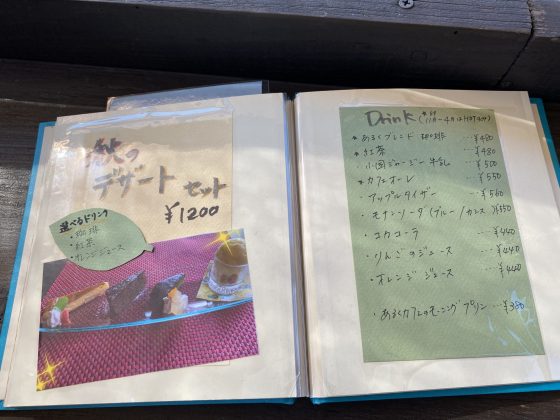 秋の
デザート セット
¥1200
選べるドリンク
・珈琲
・紅茶
・オレンジジュース
Drink
＊あるくブレンド 珈琲 …¥480
＊紅茶 …¥480
・小国ジャージー牛乳 …¥500
＊カフェオーレ …¥550
・アップルタイザー …¥560
・モナンソーダ(ブルー/カシス)¥550
・コカコーラ …¥440
・りんごジュース …¥440
・オレンジ ジュース …¥440
・あるくカフェのモーニング プリン …¥380